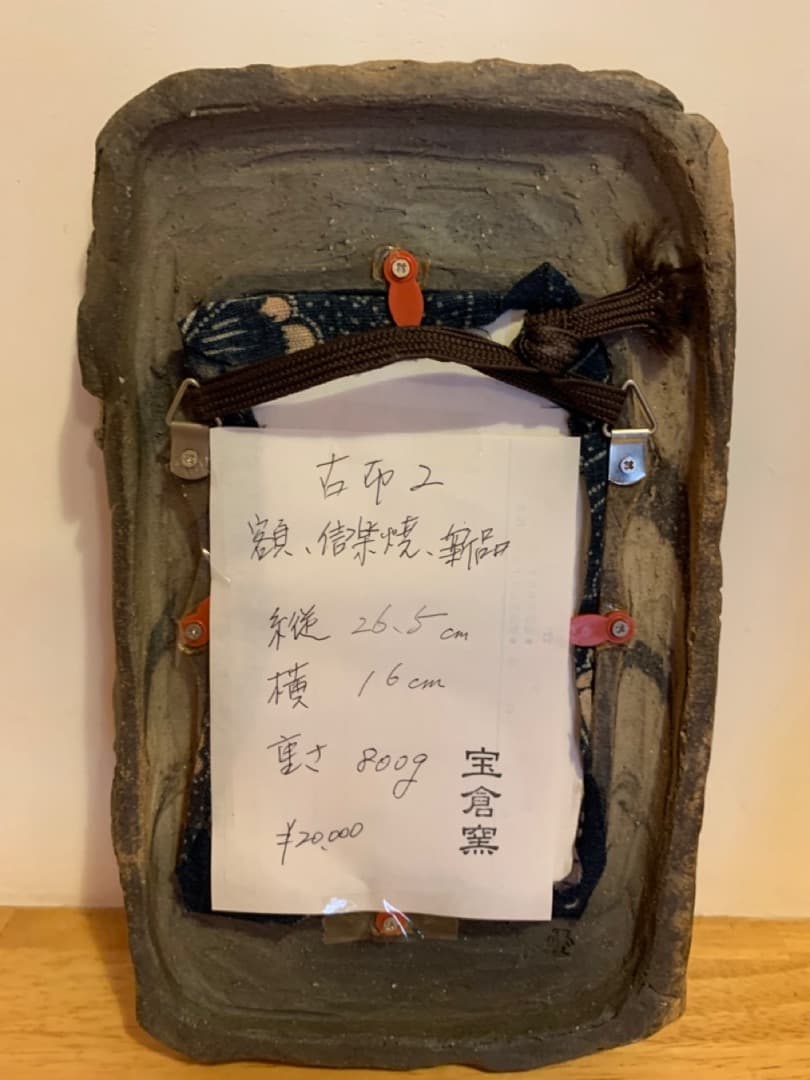 古印2
額、信楽焼、新品
縦 26.5cm
横 16cm
重さ 800g
¥20,000
宝倉窯